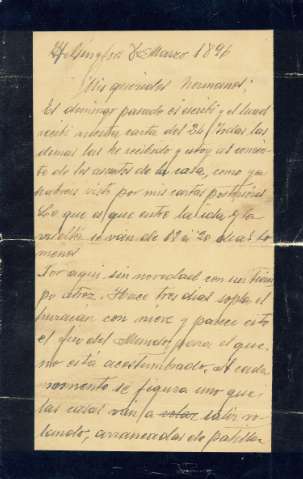 Helsingfors 8 Marzo 1896
¡Mis queridos hermanos!
El domingo pasado os escribí y el lunes
recibí vuestra carta del 24. Todas las
demas las he recibido y estoy al corrien-
te de los asuntos de la casa, como ya
habreis visto por mis cartas posteriores.
Lo que es que entre la ida y la
vuelta se van de 18 á 20 dias lo
menos
Por aqui sin novedad con un tiem-
po atroz. Hace tres dias sopla el
huracán con nieve y parece esto
el fin del Mundo para el que
no está acostumbrado. A cada
momento se figura uno que
las casas van a salir vo-
lando, arrancadas de patilla